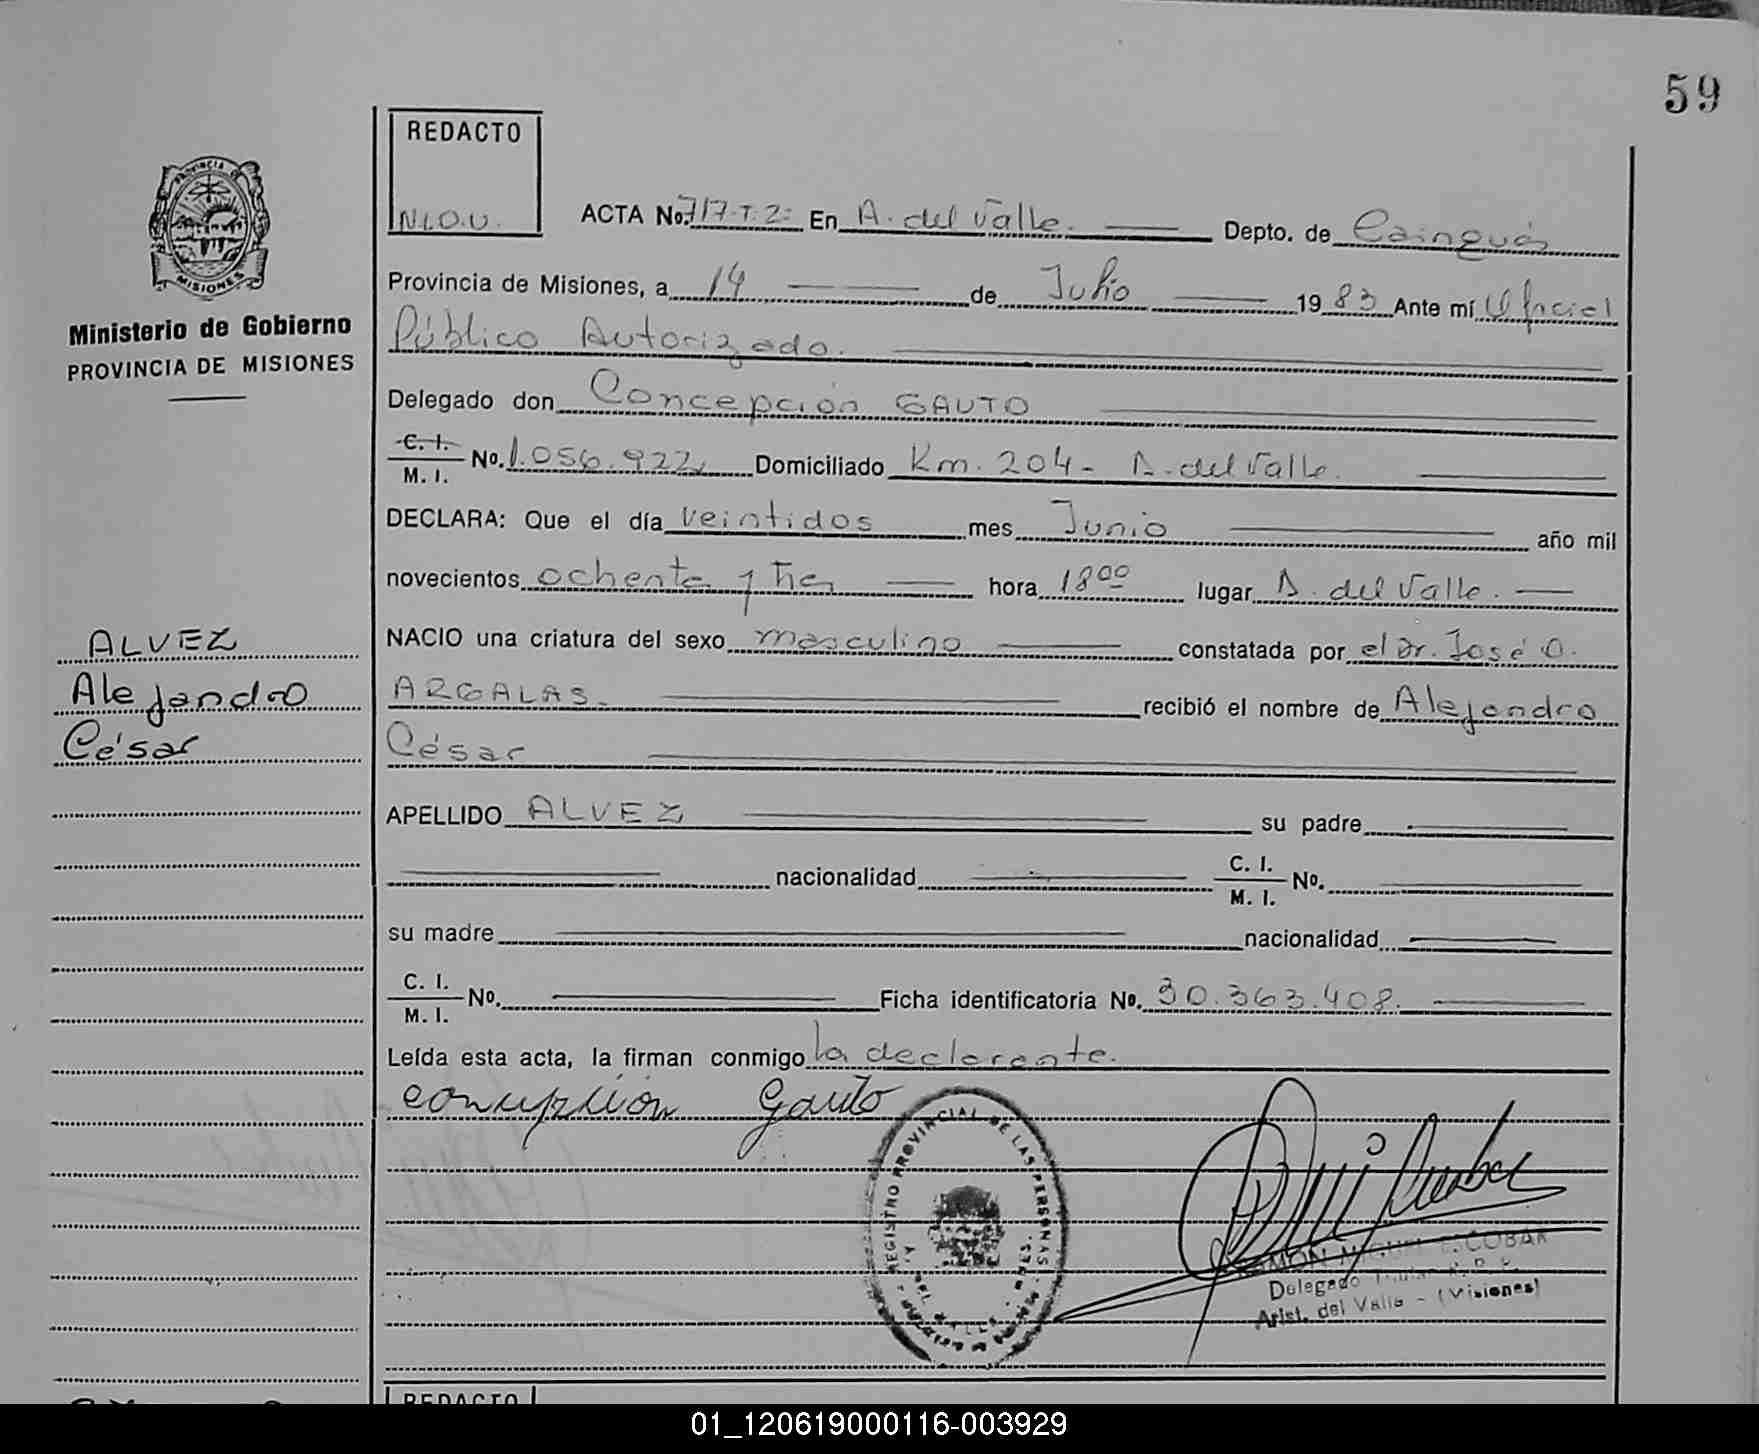 59
REDACTO
N.L.O.U.
PROVINCIA DE
MISIONES
Ministerio de Gobierno
PROVINCIA DE MISIONES
ACTA No. 717-T.2: En A. del Valle. Depto. de Cainguás
Provincia de Misiones, a 14 de Julio 1983 Ante mí Oficial
Público Autorizado.
Delegado don Concepción GAUTO
C. I. M. I. No. 1.056.922 Domiciliado Km. 204 - A. del Valle.
DECLARA: Que el día veintidos mes Junio año mil
novecientos ochenta y tres hora 18 00 lugar A. del Valle.
NACIO una criatura del sexo masculino constatada por el Dr. José O.
ARGALAS. recibió el nombre de Alejandro
César
APELLIDO ALVEZ su padre
nacionalidad C. I. M. I. No.
su madre nacionalidad
C. I. M. I. No. Ficha identificatoria No. 30.363.408.
Leída esta acta, la firman conmigo la declarante.
Concepción Gauto
ALVEZ
Alejandro
César
REGISTRO PROVINCIAL DE LAS PERSONAS
RAMON MIGUEL ESCOBAR
Delegado Titular R. P. P.
Arist. del Valle - (Misiones)
REDACTO
01_120619000116-003929